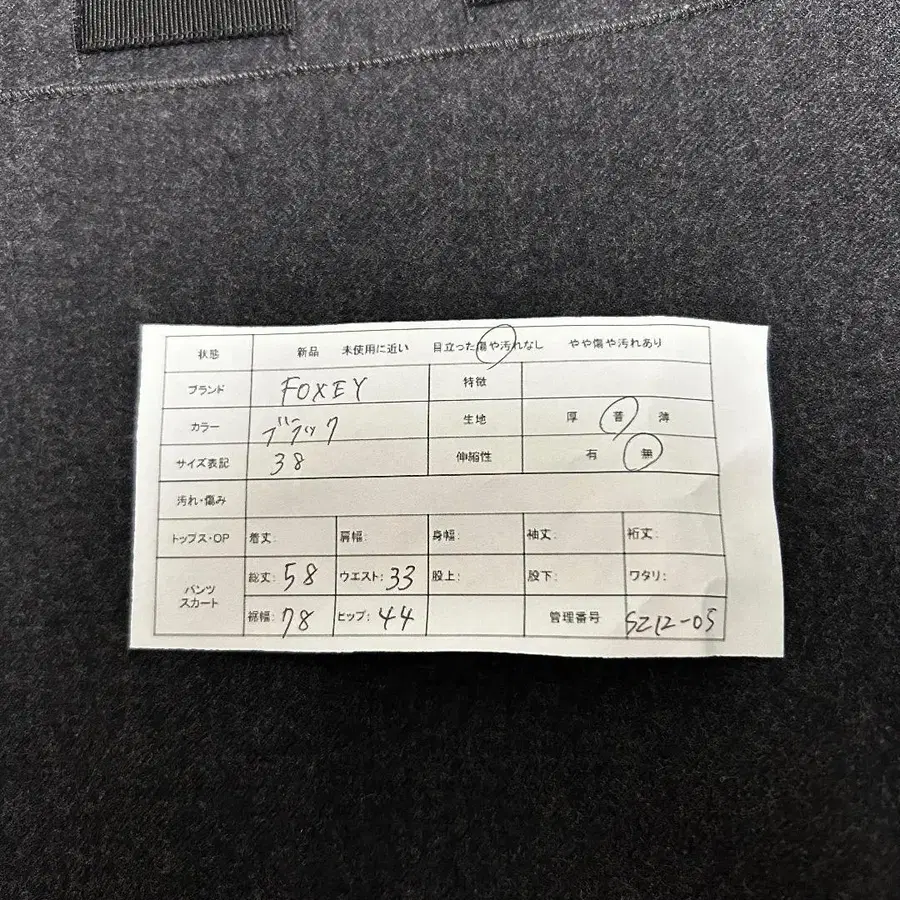 状態 新品 未使用に近い 目立った傷や汚れなし やや傷や汚れあり
ブランド FOXEY 特徴
カラー ブラック 生地 厚 普 薄
サイズ表記 38 伸縮性 有 無
汚れ・傷み
トップス・OP 着丈: 肩幅: 身幅: 袖丈: 裄丈:
パンツ スカート
総丈: 58 ウエスト: 33 股上: 股下: ワタリ:
裾幅: 78 ヒップ: 44 管理番号 SZ12-05